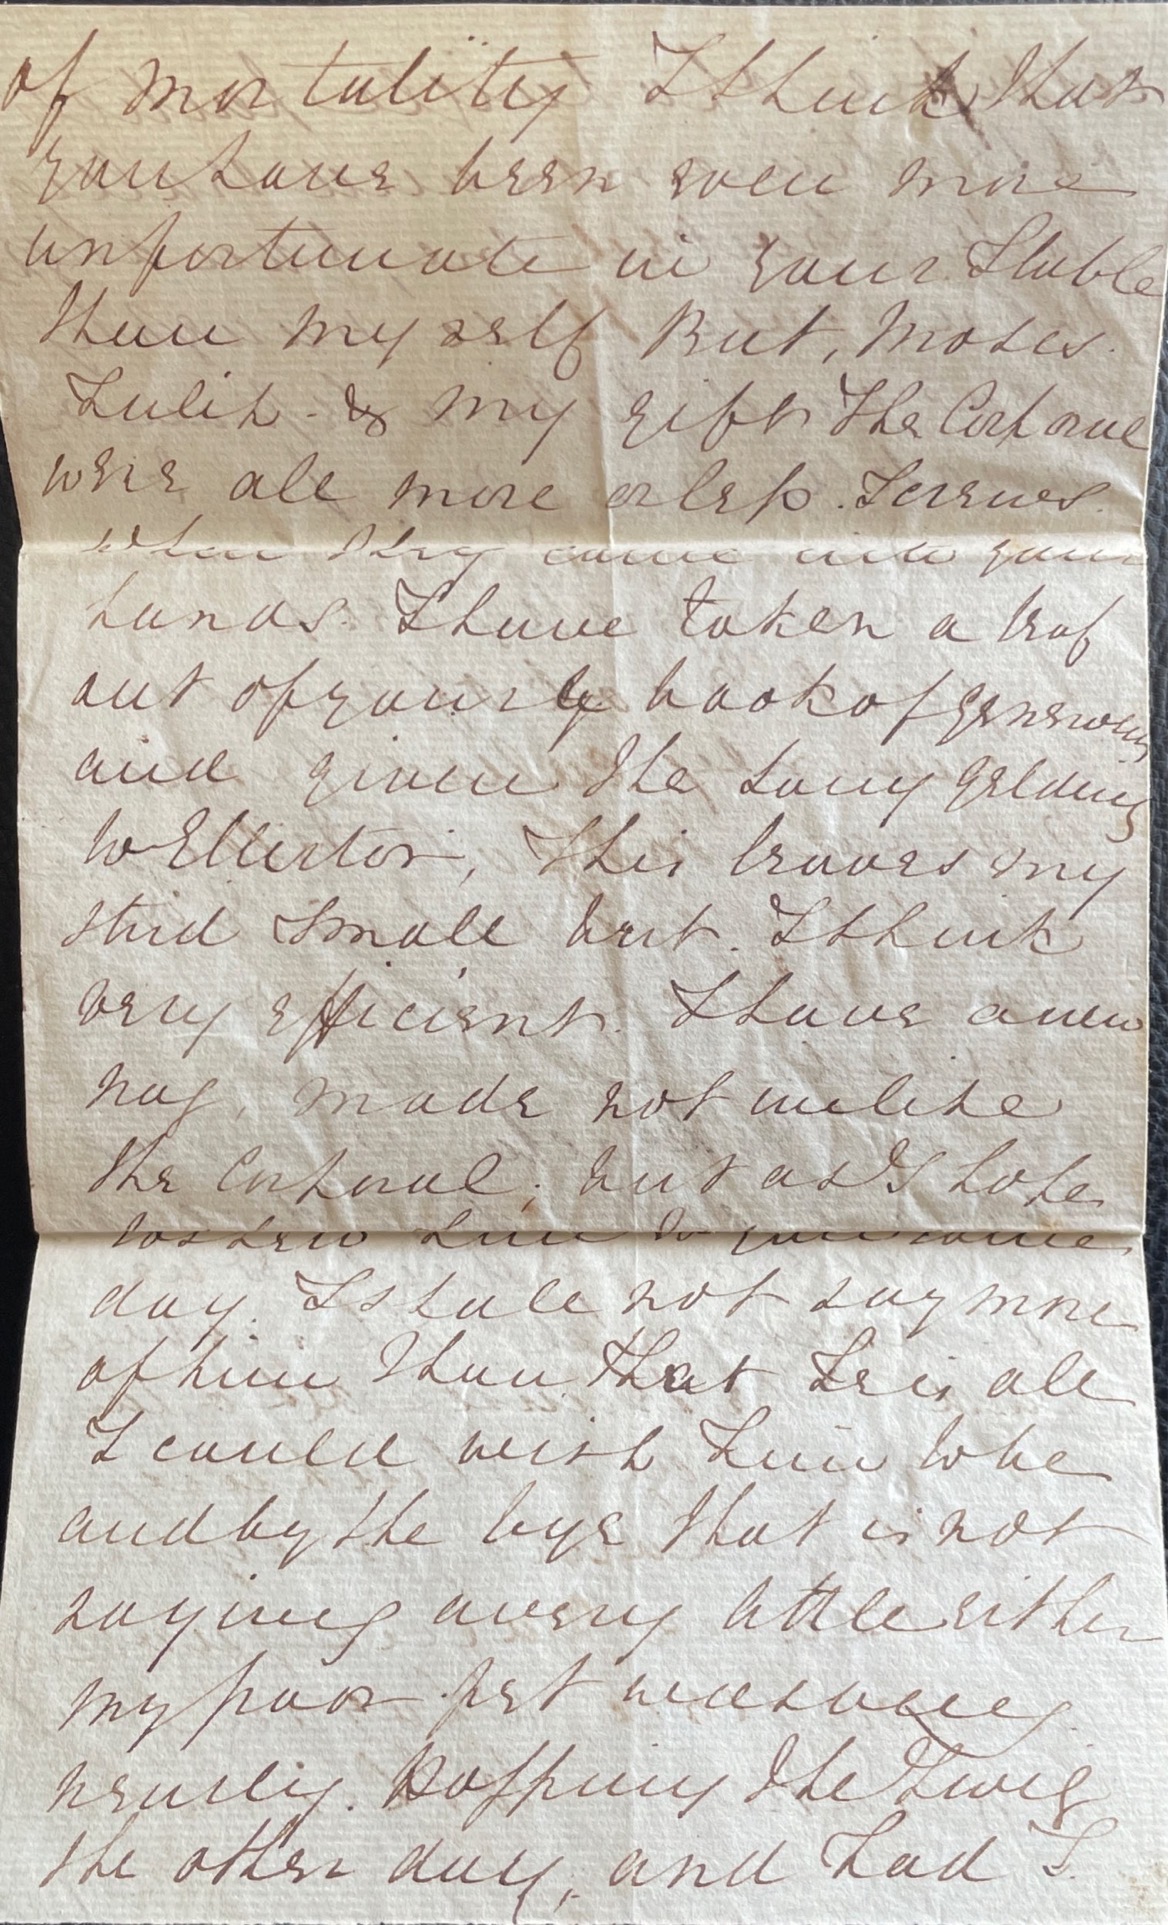 of mortality I think that
you have been even more
unfortunate in your Stable
than myself But, Moses.
Tulip - & my gift The Corporal
were all more or less. Screws.
when they came into your
hands. I have taken a leaf
out of your book of
and given the gelding
to Elliston, This leaves my
stud small but. I think
very efficient. I have a new
nag, made not unlike
the Corporal; but as I hope
to shew him to you some
day. I shall not say more
of him than that he is all
I could wish him to be
and by the bye that is not
saying a very little either
my poor pet was
nearly. hopping the Twig
the other day, and had I